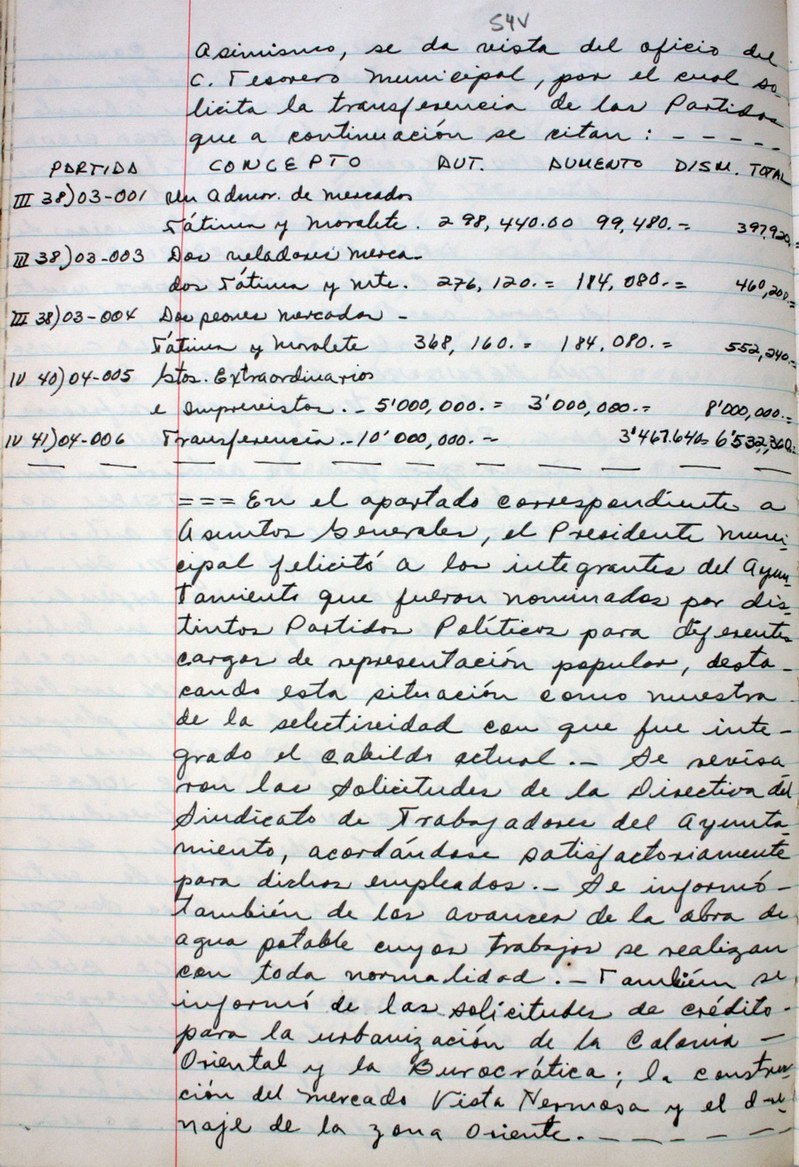 54V
Asimismo, se da vista del oficio del
C. Tesorero Municipal, por el cual so-
licita la transferencia de las Partidas
que a continuación se citan : - - - - -
PARTIDA CONCEPTO AUT. AUMENTO DISM. TOTAL
III 38)03-001 Un Admor. de mercados
Fátima y Moralete. 298,440.00 99,480.= 397,920.=
III 38)03-003 Dos veladores merca-
dos Fátima y mte. 276,120.= 184,080.= 460,200.=
III 38)03-004 Dos peones mercados -
Fátima y Moralete 368,160.= 184,080.= 552,240.=
IV 40)04-005 Gtos. Extraordinarios
e imprevistos. - 5'000,000.= 3'000,000.= 8'000,000.=
IV 41)04-006 Transferencia. - 10'000,000. - 3'467.640= 6'532,360.=
=== En el apartado correspondiente a
Asuntos Generales, el Presidente Muni-
cipal felicitó a los integrantes del Ayun-
tamiento que fueron nominados por dis-
tintos Partidos Políticos para diferentes
cargos de representación popular, desta-
cando esta situación como muestra
de la selectividad con que fue inte-
grado el cabildo actual. - Se revisa
ron las solicitudes de la Directiva del
Sindicato de Trabajadores del Ayunta-
miento, acordándose satisfactoriamente
para dichos empleados. - Se informó -
también de los avances de la obra de
agua potable cuyos trabajos se realizan
con toda normalidad. - También se
informó de las solicitudes de crédito -
para la urbanización de la Colonia -
Oriental y la Burocrática; la construc-
ción del mercado Vista Hermosa y el dre-
naje de la zona Oriente. - - - - - -